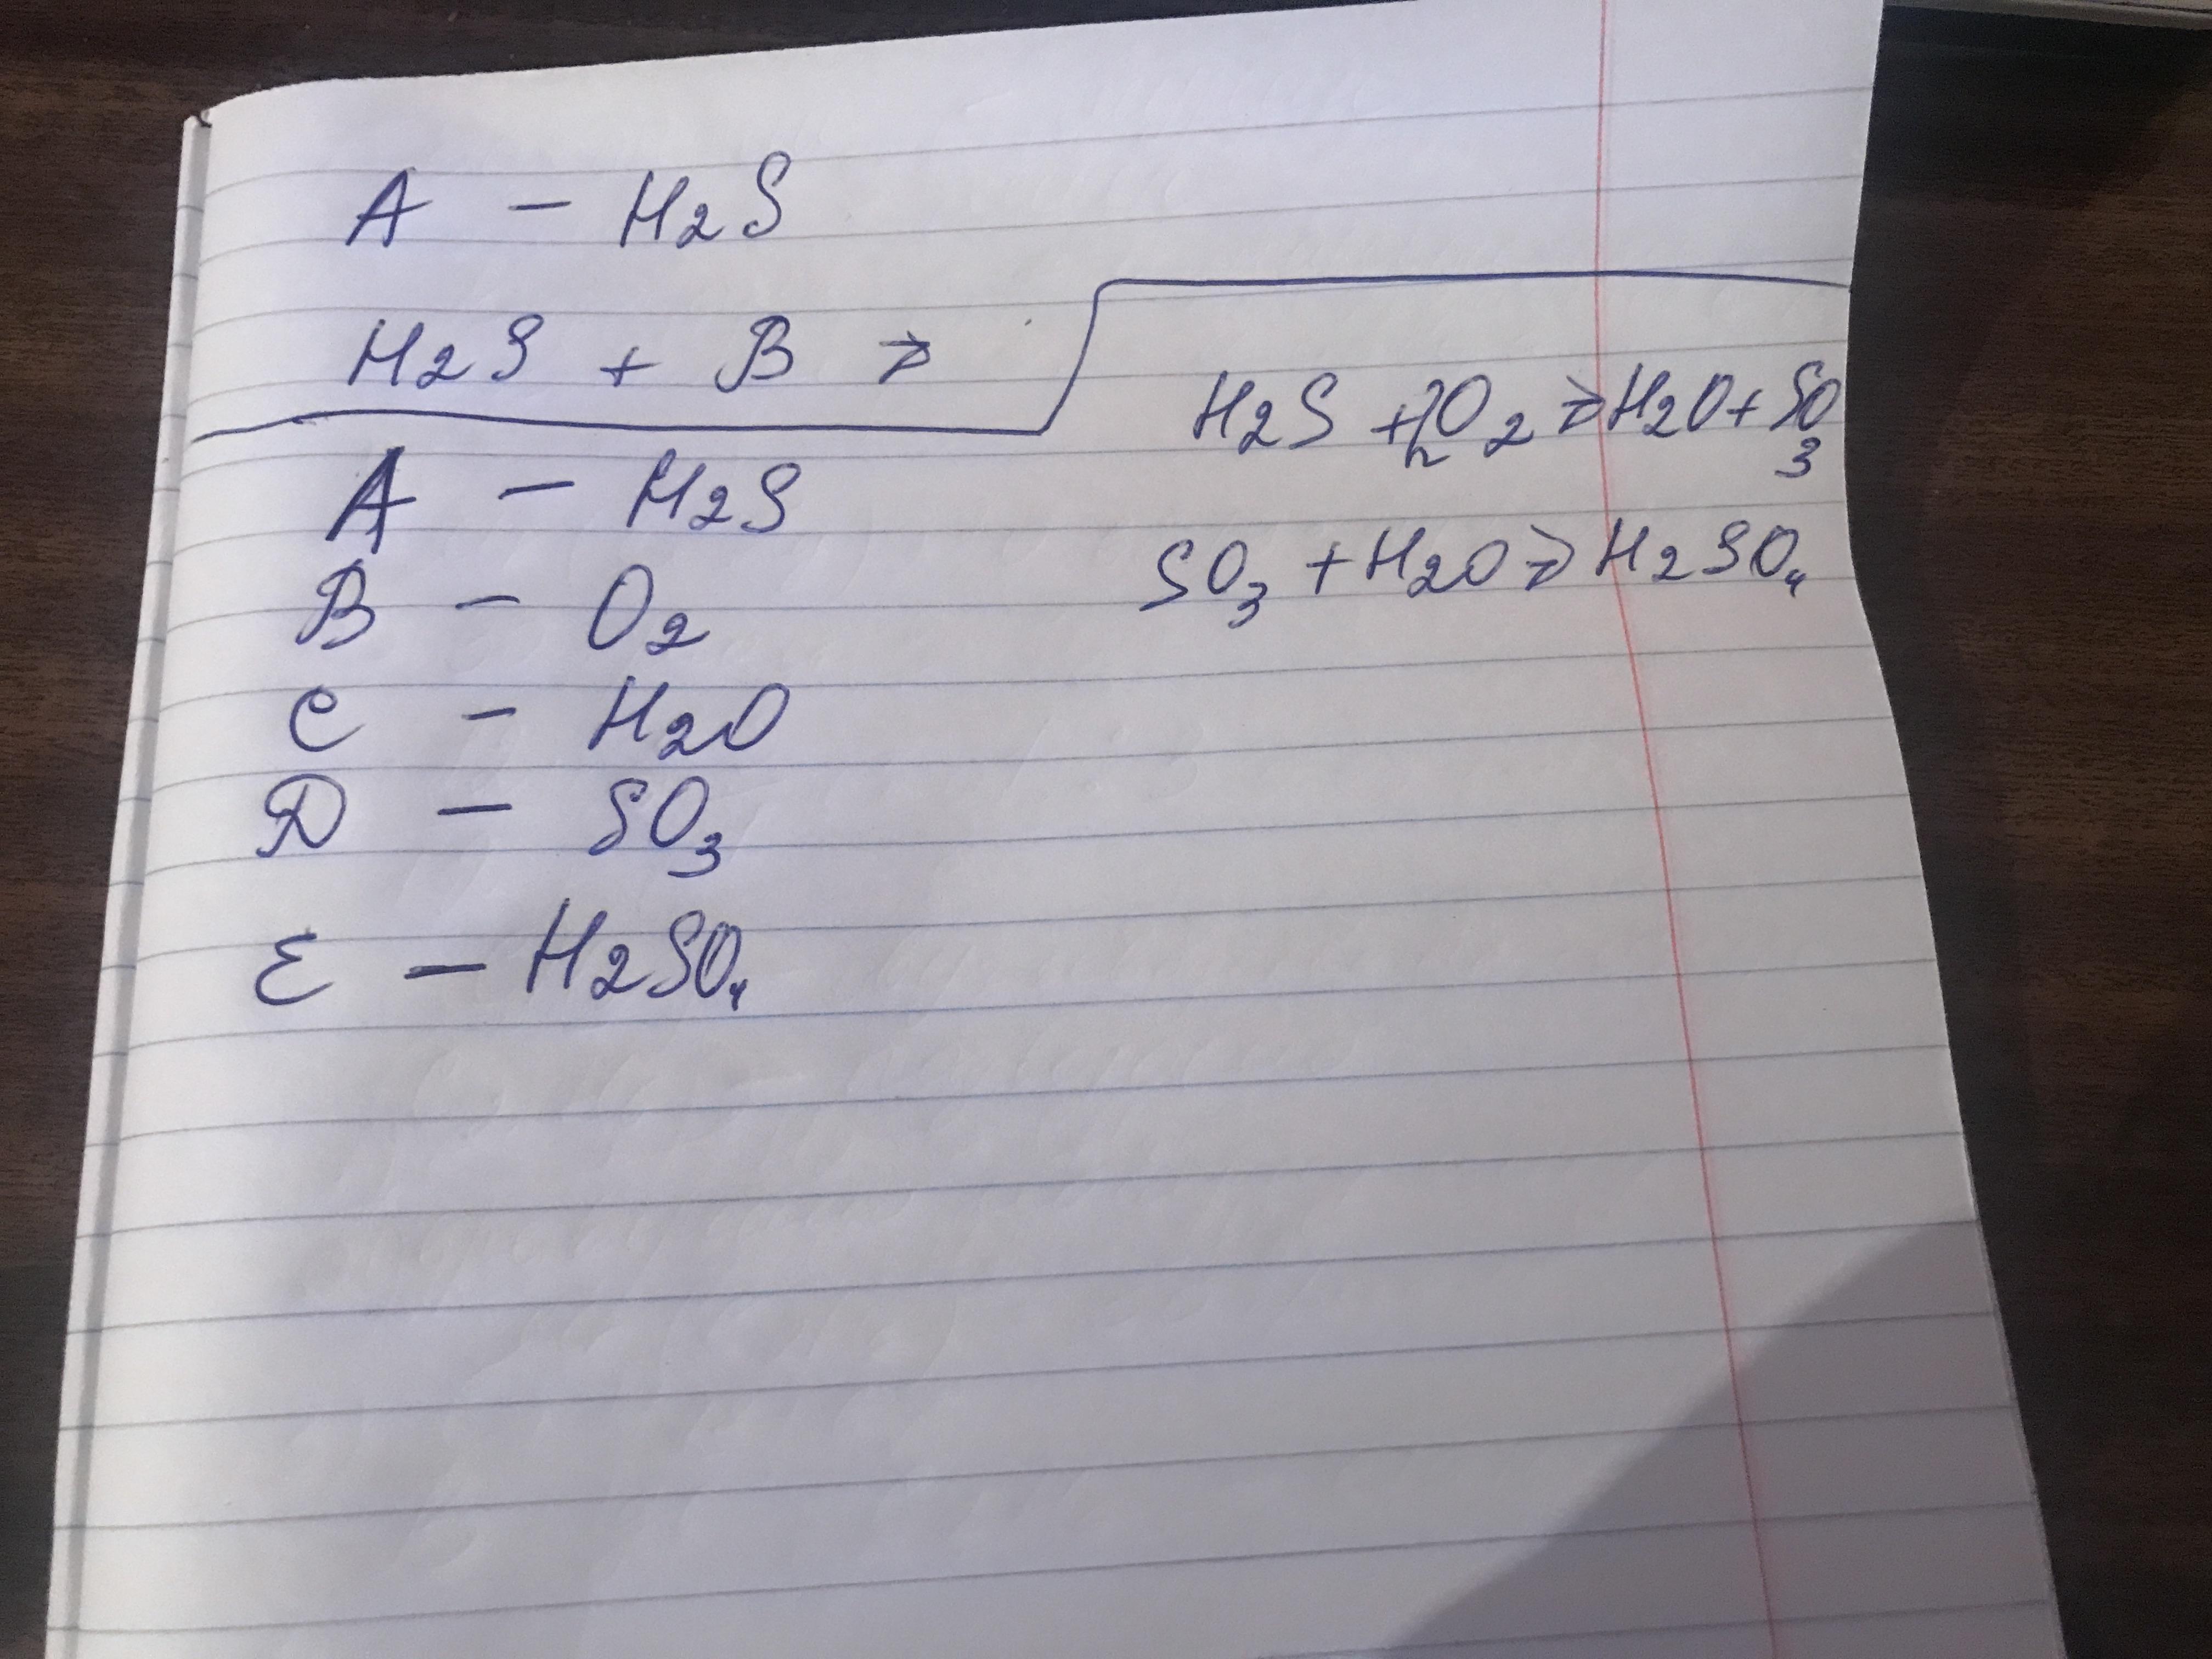 A - H2S
H2S + B →
A - H2S
B - O2
C - H2O
D - SO3
E - H2SO4
H2S + 2O2 → H2O + SO3
SO3 + H2O → H2SO4